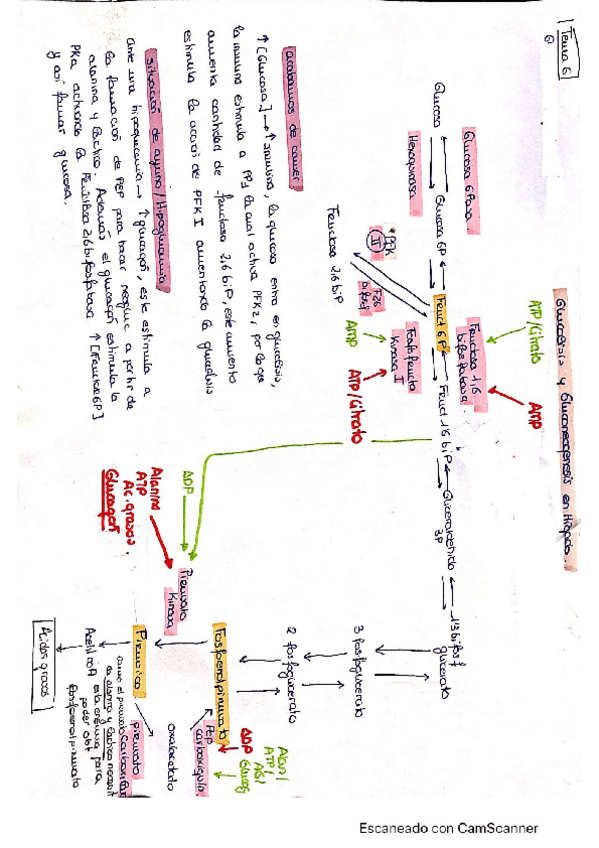 Tema 6
Glucolisis y Gluconeogenesis en Hígado.
ATP/Citrato
AMP
Glucosa 6Pasa
Fructosa 1,6
bifosfatasa
Glucosa
Glucosa 6P
Fruct 6P
Fruct 1,6 biP
Gliceraldehido
3P
1,3 bifosf
glicerato
Hexoquinasa
Fosfofructo
Kinasa I
PFK
II
F26
bifosf
AMP
ATP/Citrato
Fructosa 2,6 biP
3 fosfoglicerato
2 fosfoglicerato
Fosfoenolpiruvato
PEP
carboxiquin.
ADP
Glucag
ATP/
ADP
Piruvato
Kinasa
Alanina
ATP
Ac. grasos.
Glucagón
Piruvico
piruvato Carboxilasa
oxalacetato
Acetil coA
esta enzima para
poder obt
fosfoenolpiruvato
Ácidos grasos
acabamos de comer
↑[Glucosa] → ↑insulina, la glucosa entra en glucolisis,
la insulina estimula a PP1 la cual activa PFK2, por lo que
aumenta cantidad de fructosa 2,6 biP, este aumento
estimula la acción de PFK I aumentando la glucolisis
situación de ayuno/Hipoglucemia
ante una hipoglucemia → ↑glucagón, este estimula a
la formación de PEP para hacer neogluc a partir de
alanina y lactico. Además el glucagón estimula la
PKa activando la Fructosa 2,6 bifosfatasa ↑[Fructosa 6P]
y así formar glucosa.
Escaneado con CamScanner